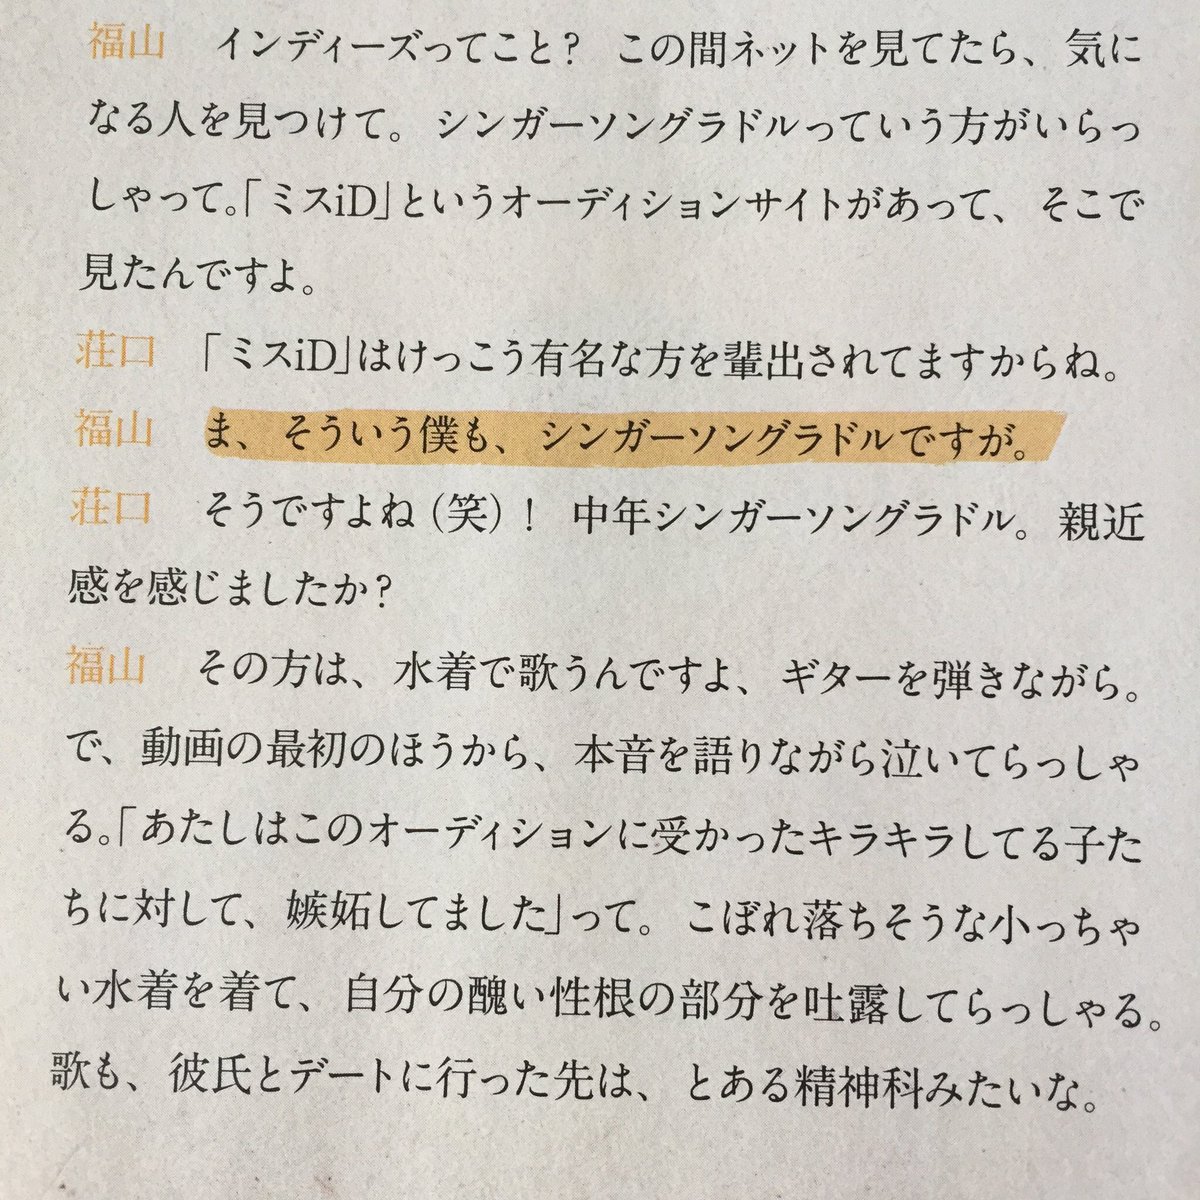 福山　インディーズってこと？　この間ネットを見てたら、気に
なる人を見つけて。シンガーソングラドルっていう方がいらっ
しゃって。「ミスiD」というオーディションサイトがあって、そこで
見たんですよ。
荘口　「ミスiD」はけっこう有名な方を輩出されてますからね。
福山　ま、そういう僕も、シンガーソングラドルですが。
荘口　そうですよね（笑）！　中年シンガーソングラドル。親近
感を感じましたか？
福山　その方は、水着で歌うんですよ、ギターを弾きながら。
で、動画の最初のほうから、本音を語りながら泣いてらっしゃ
る。「あたしはこのオーディションに受かったキラキラしてる子た
ちに対して、嫉妬してました」って。こぼれ落ちそうな小っちゃ
い水着を着て、自分の醜い性根の部分を吐露してらっしゃる。
歌も、彼氏とデートに行った先は、とある精神科みたいな。